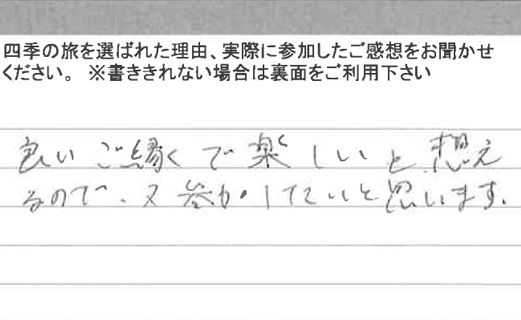 四季の旅を選ばれた理由、実際に参加したご感想をお聞かせ
ください。 ※書ききれない場合は裏面をご利用下さい
良いご縁で楽しいと想え
るので、又参加したいと思います。